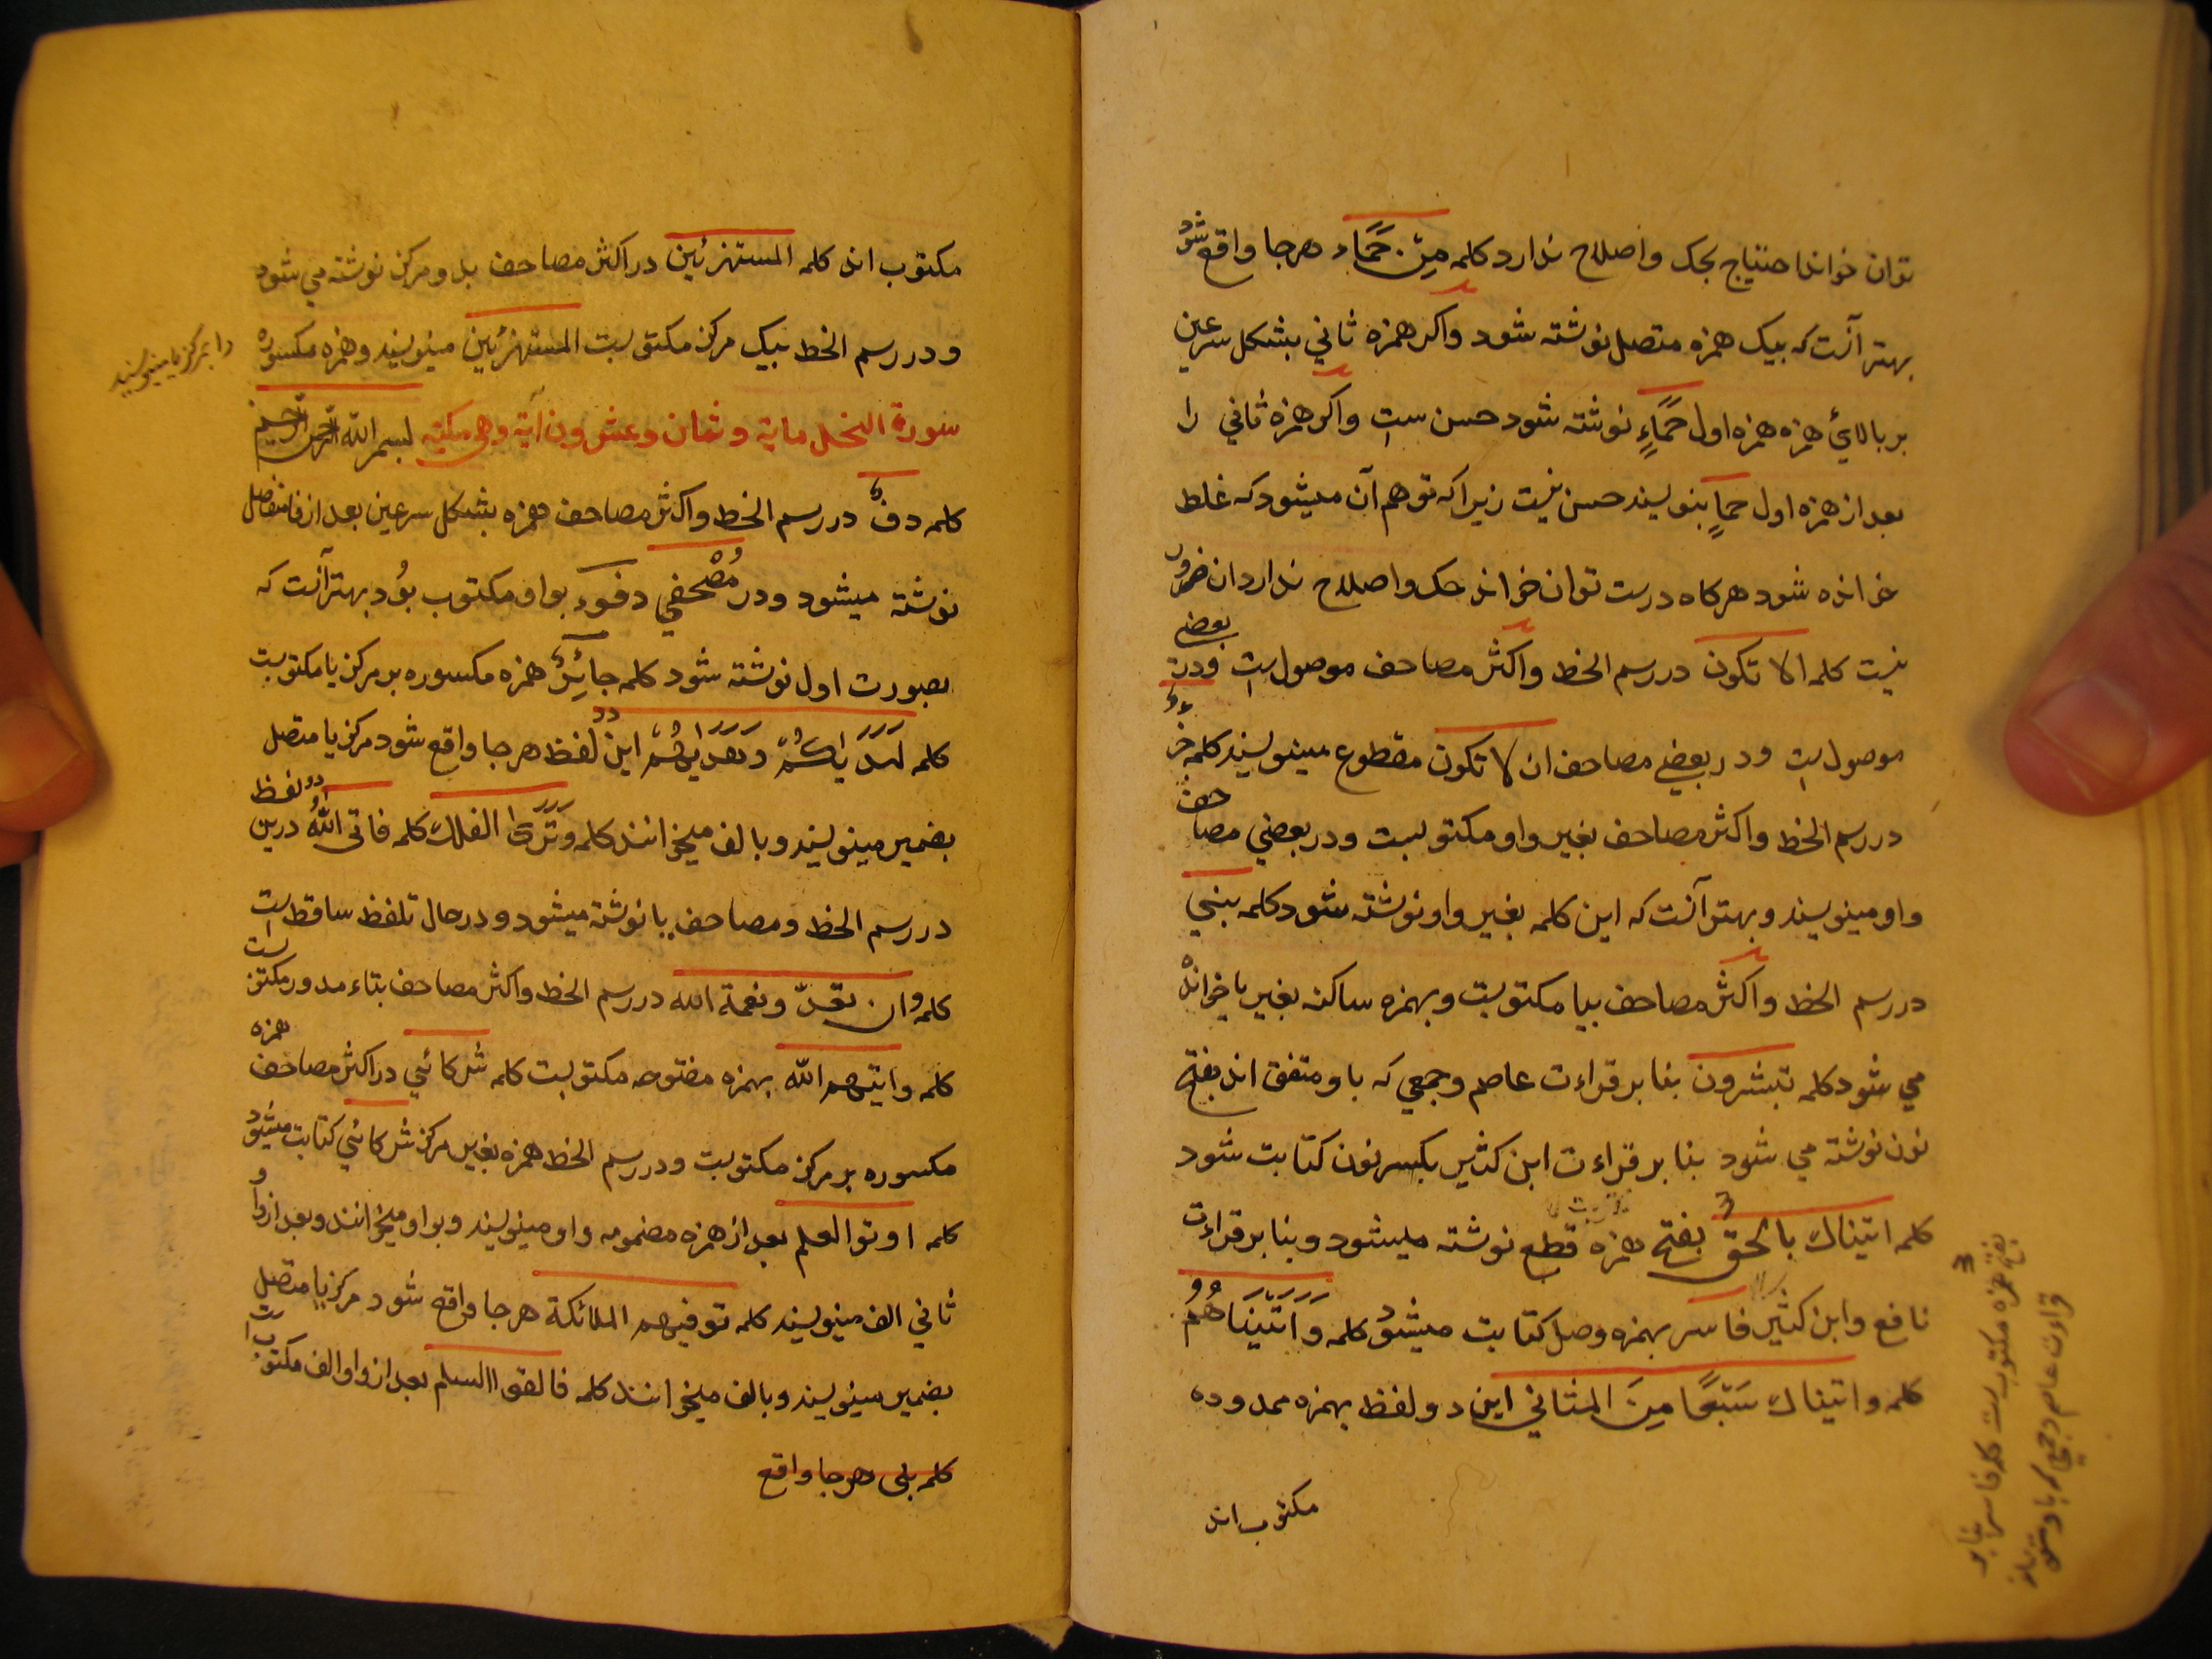 توان خواند احتیاج بحک واصلاح ندارد کلمه مِنْ حَمَاء هرجا واقع شود
بهتر آنست که بیک همزه متصل نوشته شود واکر همزه ثاني بشکل سرعین
بر بالائ همزه همزه اول حَمَاءٍ نوشته شود حسن ست واکر همزه ثاني را
بعد از همزه اول حماٍ بنویسند حسن نیست زیراکه توهم آن میشود که غلط
خوانده شود هرکاه درست توان خواند حک واصلاح ندارد ان ضرور
نیست کلمه الا تکون در رسم الخط واکثر مصاحف موصول ست ودر بعضي
موصول ست ودر بعضي مصاحف ان لا تکون مقطوع مینویسند کلمه
در رسم الخط واکثر مصاحف بغیر واو مکتوبست ودر بعضي مصاحف
واو مینویسند وبهتر آنست که این کلمه بغیر واو نوشته شود کلمه نبئي
در رسم الخط واکثر مصاحف بیا مکتوبست وبهمزه ساکنه بغیر یا خوانده
مي شود کلمه تبشرون بنابر قراءت عاصم وجمعي که باو متفق اند بفتح
نون نوشته مي شود بنا بر قراءت ابن کثیر بکسر نون کتابت شود
کلمه اتیناك بالحق بفتح همزه قطع نوشته میشود وبنابر قراءت
نافع وابن کثیر فاسر بهمزه وصل کتابت میشود کلمه وَاٰتَیْنَاهُمْ
کلمه واتیناك سَبْعًا مِنَ المثاني این دو لفظ بهمزه ممدوده
مکتوب اند
بفتح همزه مکتوبست کلمه فاسر بنابر
قراءت عاصم وجمعي که باو متفق اند
مکتوب اند کلمه المستهزئین در اکثر مصاحف بدو مرکز نوشته مي شود
ودر رسم الخط بیک مرکز مکتوبست المستهزئین مینویسند وهمزه مکسوره
را بمرکزه مینویسند
سورة النحل مایة وثمان وعشرون اٰیة وهي مکیة بسم الله الرحمن الرحیم
کلمه دفء در رسم الخط واکثر مصاحف همزه بشکل سرعین بعد از فا منفصل
نوشته میشود ودر مُصْحَفي دفوء بواو مکتوب بُود بهتر آنست که
بصورت اول نوشته شود کلمه جائِرٌ همزه مکسوره بر مرکز یا مکتوبست
کلمه لَهَدٰیکُمْ وَهَدٰیهُمْ این دو لفظ هرجا واقع شود مرکز یا متصل
بضمیر مینویسند وبالف میخوانند کلمه وَتَرَی الفلك کلمه فاتی اللّٰهُ درین دو لفظ
در رسم الخط ومصاحف یا نوشته میشود ودر حال تلفظ ساقط ست
کلمه وان تعدّو نعمة الله در رسم الخط واکثر مصاحف بتاء مدور مکتوبست
کلمه واتیهم اللّٰه بهمزه مفتوحه مکتوبست کلمه شرکائي در اکثر مصاحف همزه
مکسوره بر مرکز مکتوبست ودر رسم الخط همزه بغیر مرکز شرکائي کتابت میشود
کلمه اوتو العلم بعد از همزه مضمومه واو مینویسند وبواو میخوانند وبعد از واو
ثاني الف مینویسند کلمه توفیهم الملائکة هرجا واقع شود مرکز یا متصل
بضمیر مینویسند وبالف میخوانند کلمه فالقوا السلم بعد از واو الف مکتوبست
کلمه بلی هرجا واقع